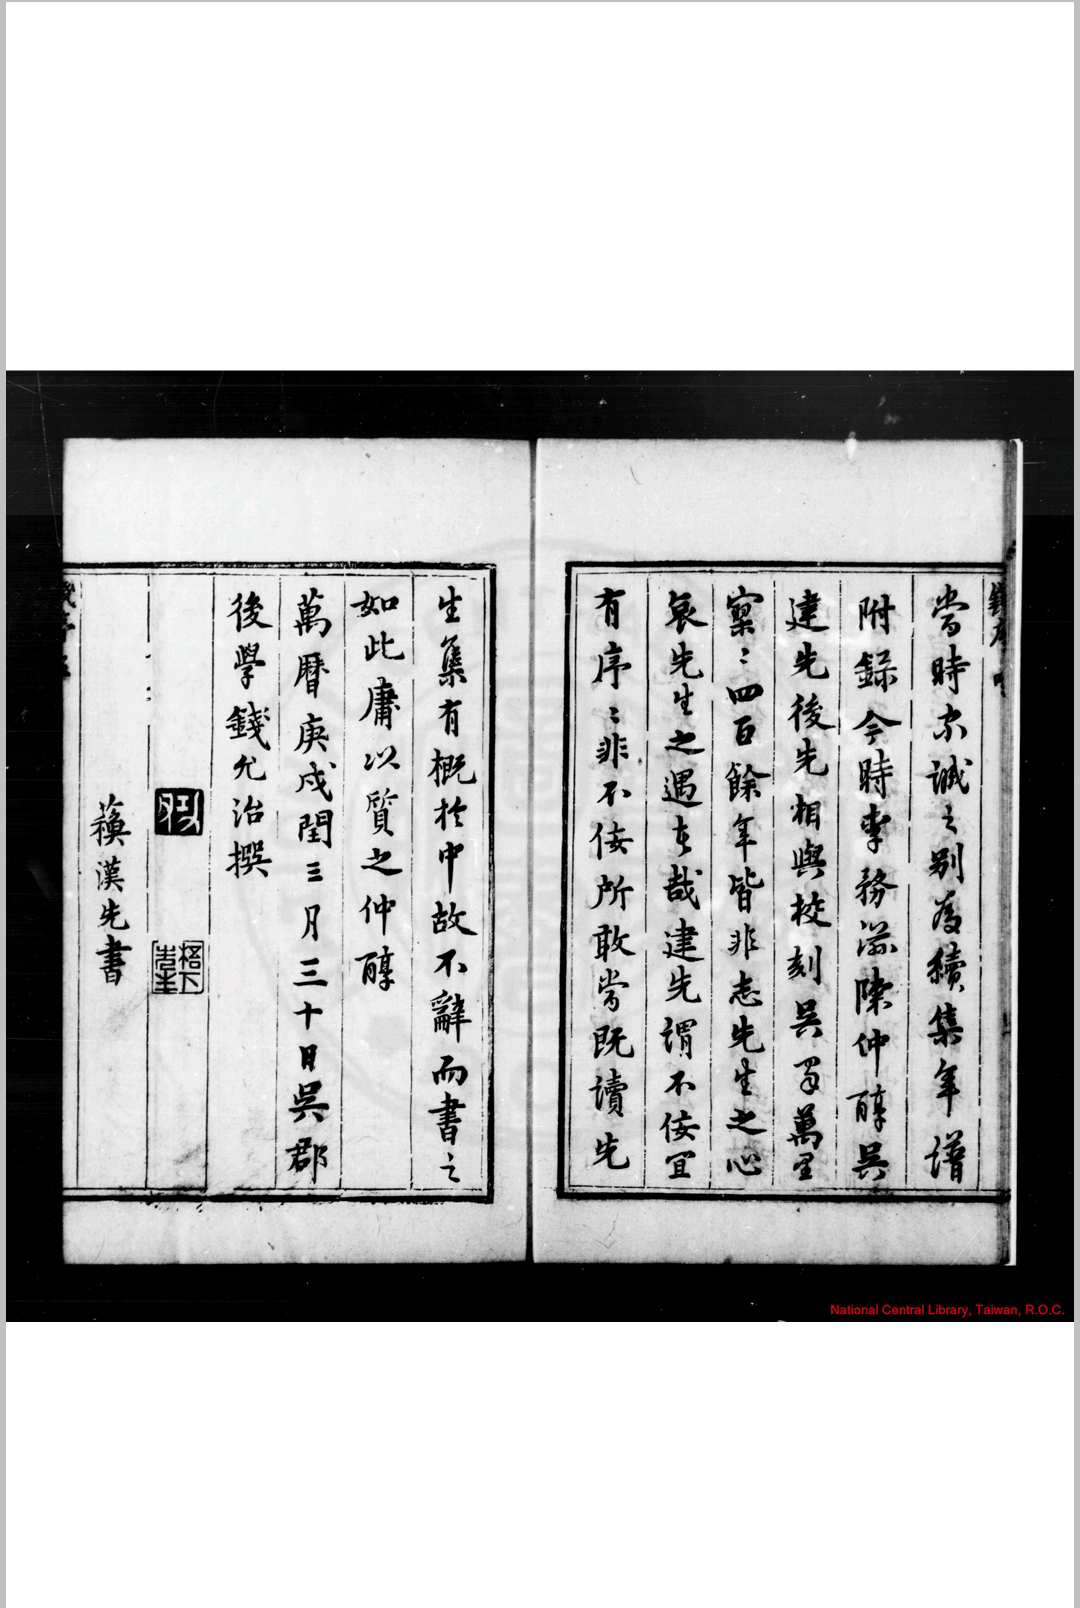 嘗時宗誠之別為續集年譜
附錄今時李務滋陳仲醇吳
建先後先相與校刻吳君萬里
寥〻四百餘年皆非志先生之心
哀先生之遇者哉建先謂不佞宜
有序〻非不佞所敢當既讀先
生集有概於中故不辭而書之
如此庸以質之仲醇
萬曆庚戌閏三月三十日吳郡
後學錢允治撰
漢先書
National Central Library, Taiwan, R.O.C.